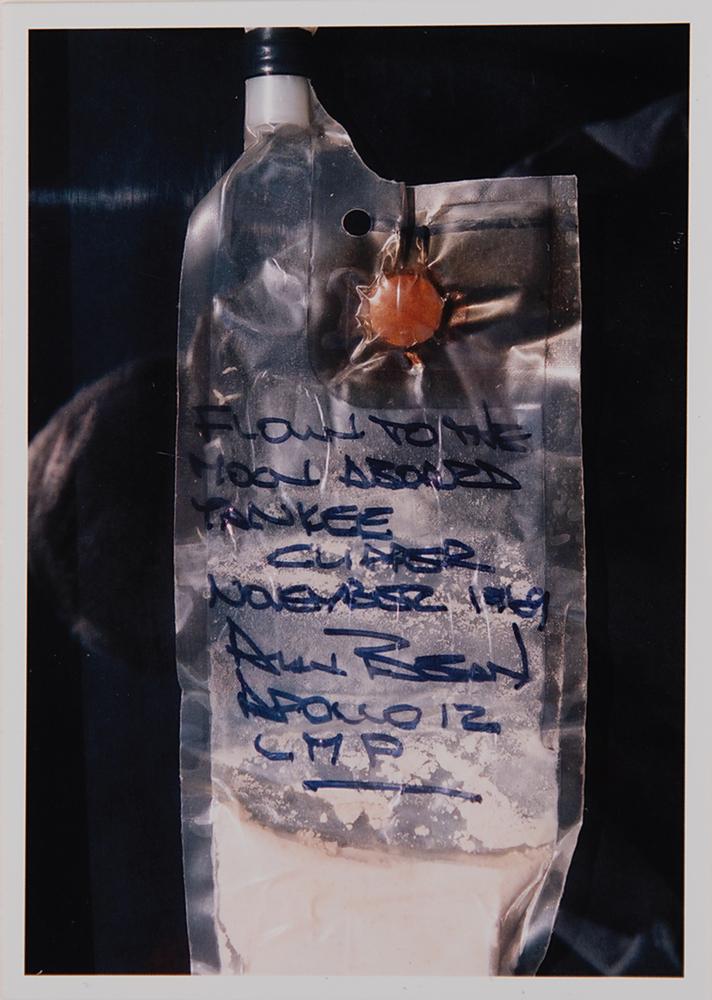 FLOWN TO THE
MOON ABOARD
YANKEE
CLIPPER
NOVEMBER 1969
Alan Bean
APOLLO 12
LMP